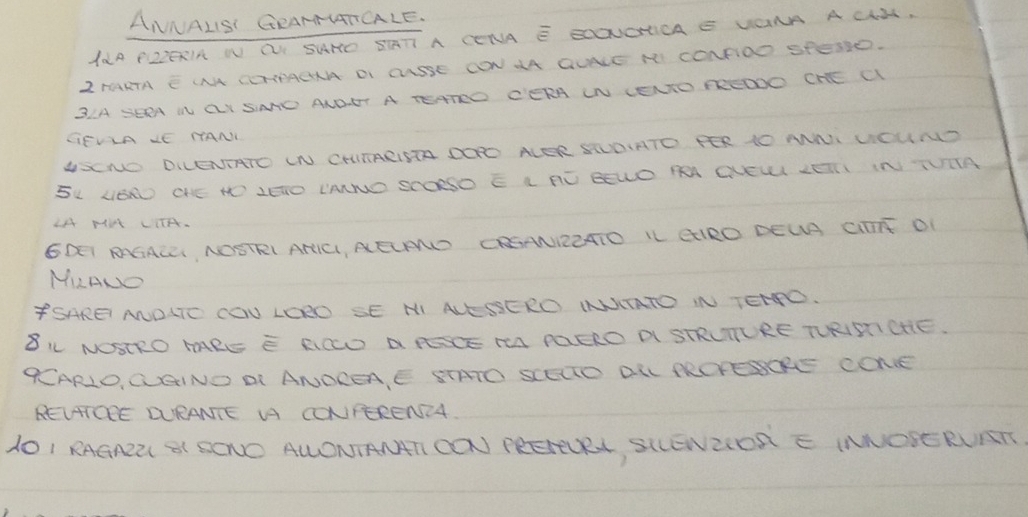 ANNALISI GRAMMATICALE.
1 LA PIZZERIA IN CUI SIAMO STATI A CENA È ECONOMICA E VICINA A CASA.
2 MARTA È UNA COMPAGNA DI CLASSE CON LA QUALE MI CONFIDO SPESSO.
3 LA SERA IN CUI SIAMO ANDATI A TEATRO C'ERA UN VENTO FREDDO CHE CI
GELLA LE MANI.
4 SONO DIVENTATO UN CHITARISTA DOPO AVER STUDIATO PER 10 ANNI VIOLINO
5 IL LIBRO CHE HO LETTO L'ANNO SCORSO È IL PIÙ BELLO FRA QUELLI LETTI IN TUTTA
LA MIA VITA.
6 DEI RAGAZZI, NOSTRI AMICI, AVEVANO ORGANIZZATO IL GIRO DELLA CITTÀ DI
MILANO
7 SAREI ANDATO CON LORO SE MI AVESSERO INVITATO IN TEMPO.
8 IL NOSTRO MARE È RICCO DI PESCE MA POVERO DI STRUTTURE TURISTICHE.
9 CARLO, CUGINO DI ANDREA, È STATO SCELTO DAL PROFESSORE COME
RELATORE DURANTE LA CONFERENZA.
10 I RAGAZZI SI SONO ALLONTANATI CON PREMURA, SILENZIOSI E INNOSERVATI.